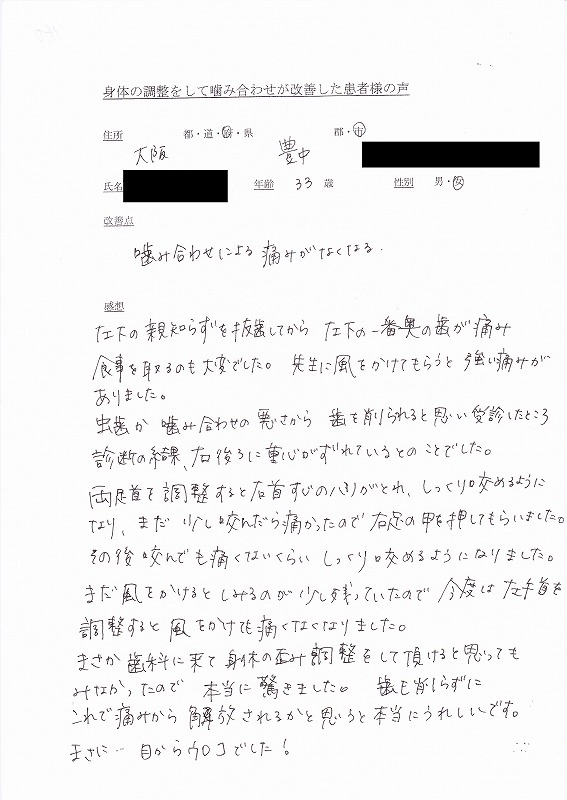 身体の調整をして噛み合わせが改善した患者様の声
住所 大阪 都・道・府・県 豊中 郡・市
氏名 年齢 33 歳 性別 男・女
改善点
噛み合わせによる痛みがなくなる.
感想
左下の親知らずを抜歯してから 左下の一番奥の歯が痛み
食事を取るのも大変でした。 先生に風をかけてもらうと強い痛みが
ありました。
虫歯か噛み合わせの悪さから 歯を削られると思い受診したところ
診断の結果、右後ろに重心がずれているとのことでした。
両足首を調整すると右首すじのハリがとれ、しっくり咬めるように
なり、まだ少し咬んだら痛かったので右足の甲を押してもらいました。
その後咬んでも痛くないくらいしっくり咬めるようになりました。
まだ風をかけるとしみるのが少し残っていたので今度は左手首を
調整すると風をかけても痛くなくなりました。
まさか歯科に来て身体の歪み調整をして頂けると思っても
みなかったので 本当に驚きました。 歯も削らずに
これで痛みから解放されるかと思うと本当にうれしいです。
まさに… 目からウロコでした!